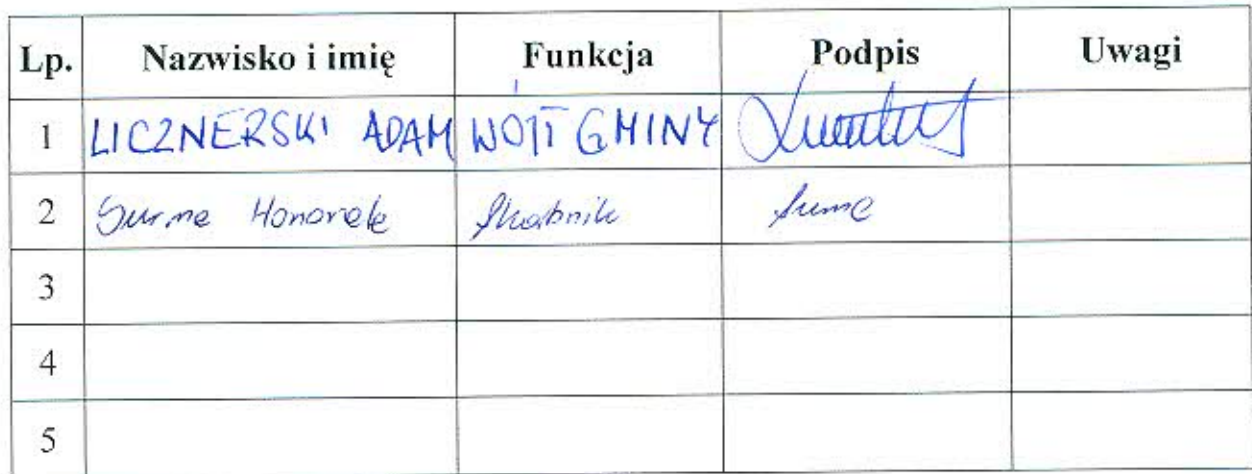 Lp. Nazwisko i imię Funkcja Podpis Uwagi
1 LICZNERSKI ADAM WÓJT GMINY
2 Surma Honorata Skarbnik
3
4
5